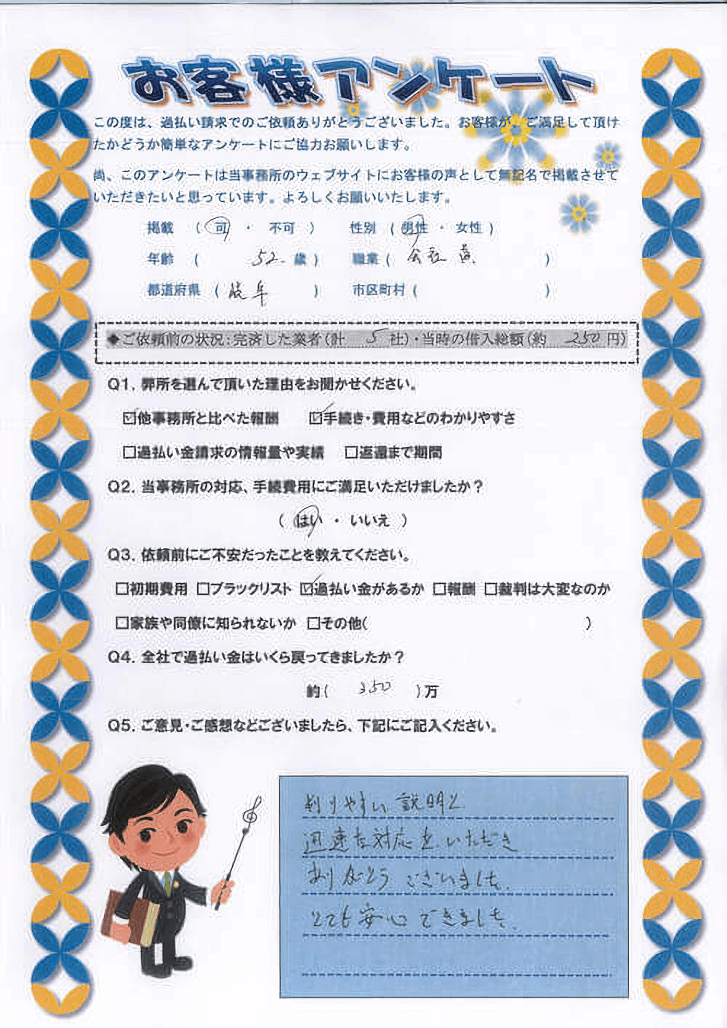 お客様アンケート
この度は、過払い請求でのご依頼ありがとうございました。お客様が、ご満足して頂け
たかどうか簡単なアンケートにご協力お願いします。
尚、このアンケートは当事務所のウェブサイトにお客様の声として無記名で掲載させて
いただきたいと思っています。よろしくお願いいたします。
掲載 ( 可 ・ 不可 ) 性別 ( 男性 ・ 女性 )
年齢 ( 52 歳 ) 職業 ( 会社員 )
都道府県 ( 岐阜 ) 市区町村 ( )
◆ご依頼前の状況:完済した業者(計 5 社)・当時の借入総額(約 250 円)
Q1. 弊所を選んで頂いた理由をお聞かせください。
☑他事務所と比べた報酬 ☑手続き・費用などのわかりやすさ
□過払い金請求の情報量や実績 □返還まで期間
Q2. 当事務所の対応、手続費用にご満足いただけましたか？
( はい ・ いいえ )
Q3. 依頼前にご不安だったことを教えてください。
□初期費用 □ブラックリスト ☑過払い金があるか □報酬 □裁判は大変なのか
□家族や同僚に知られないか □その他( )
Q4. 全社で過払い金はいくら戻ってきましたか？
約( 350 )万
Q5. ご意見・ご感想などございましたら、下記にご記入ください。
判りやすい説明と
迅速な対応をいただき
ありがとうございました。
とても安心できました。